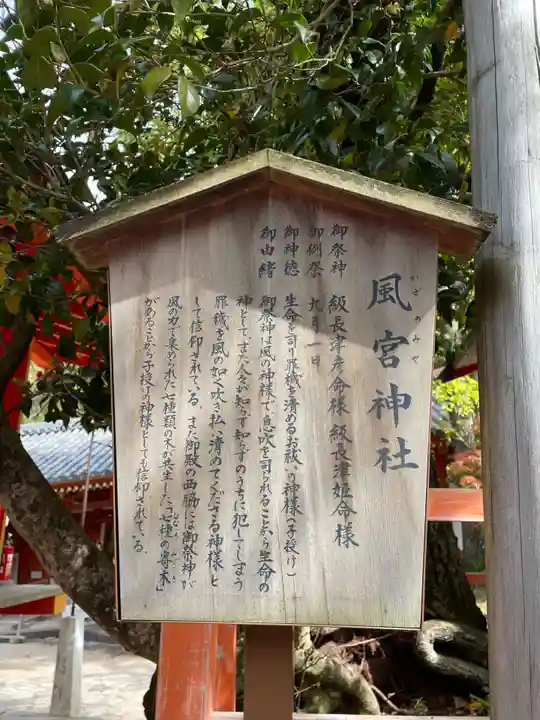 風宮神社
かぜのみや
御祭神　級長津彦命様 級長津姫命様
御例祭　九月一日
御神徳　生命を司り罪穢を清めるお祓いの神様(子授け)
御由緒　御祭神は風の神様で、息吹を司られることから生命の
神としてまた人々が知らず知らずのうちに犯してしまう
罪穢を風の如く吹き払い清めてくださる神様と
して信仰されている。また御殿の西脇には御祭神が
風の力で集められた七種類の木が共生した「七種の寄木」
があることから子授けの神様としても信仰されている。